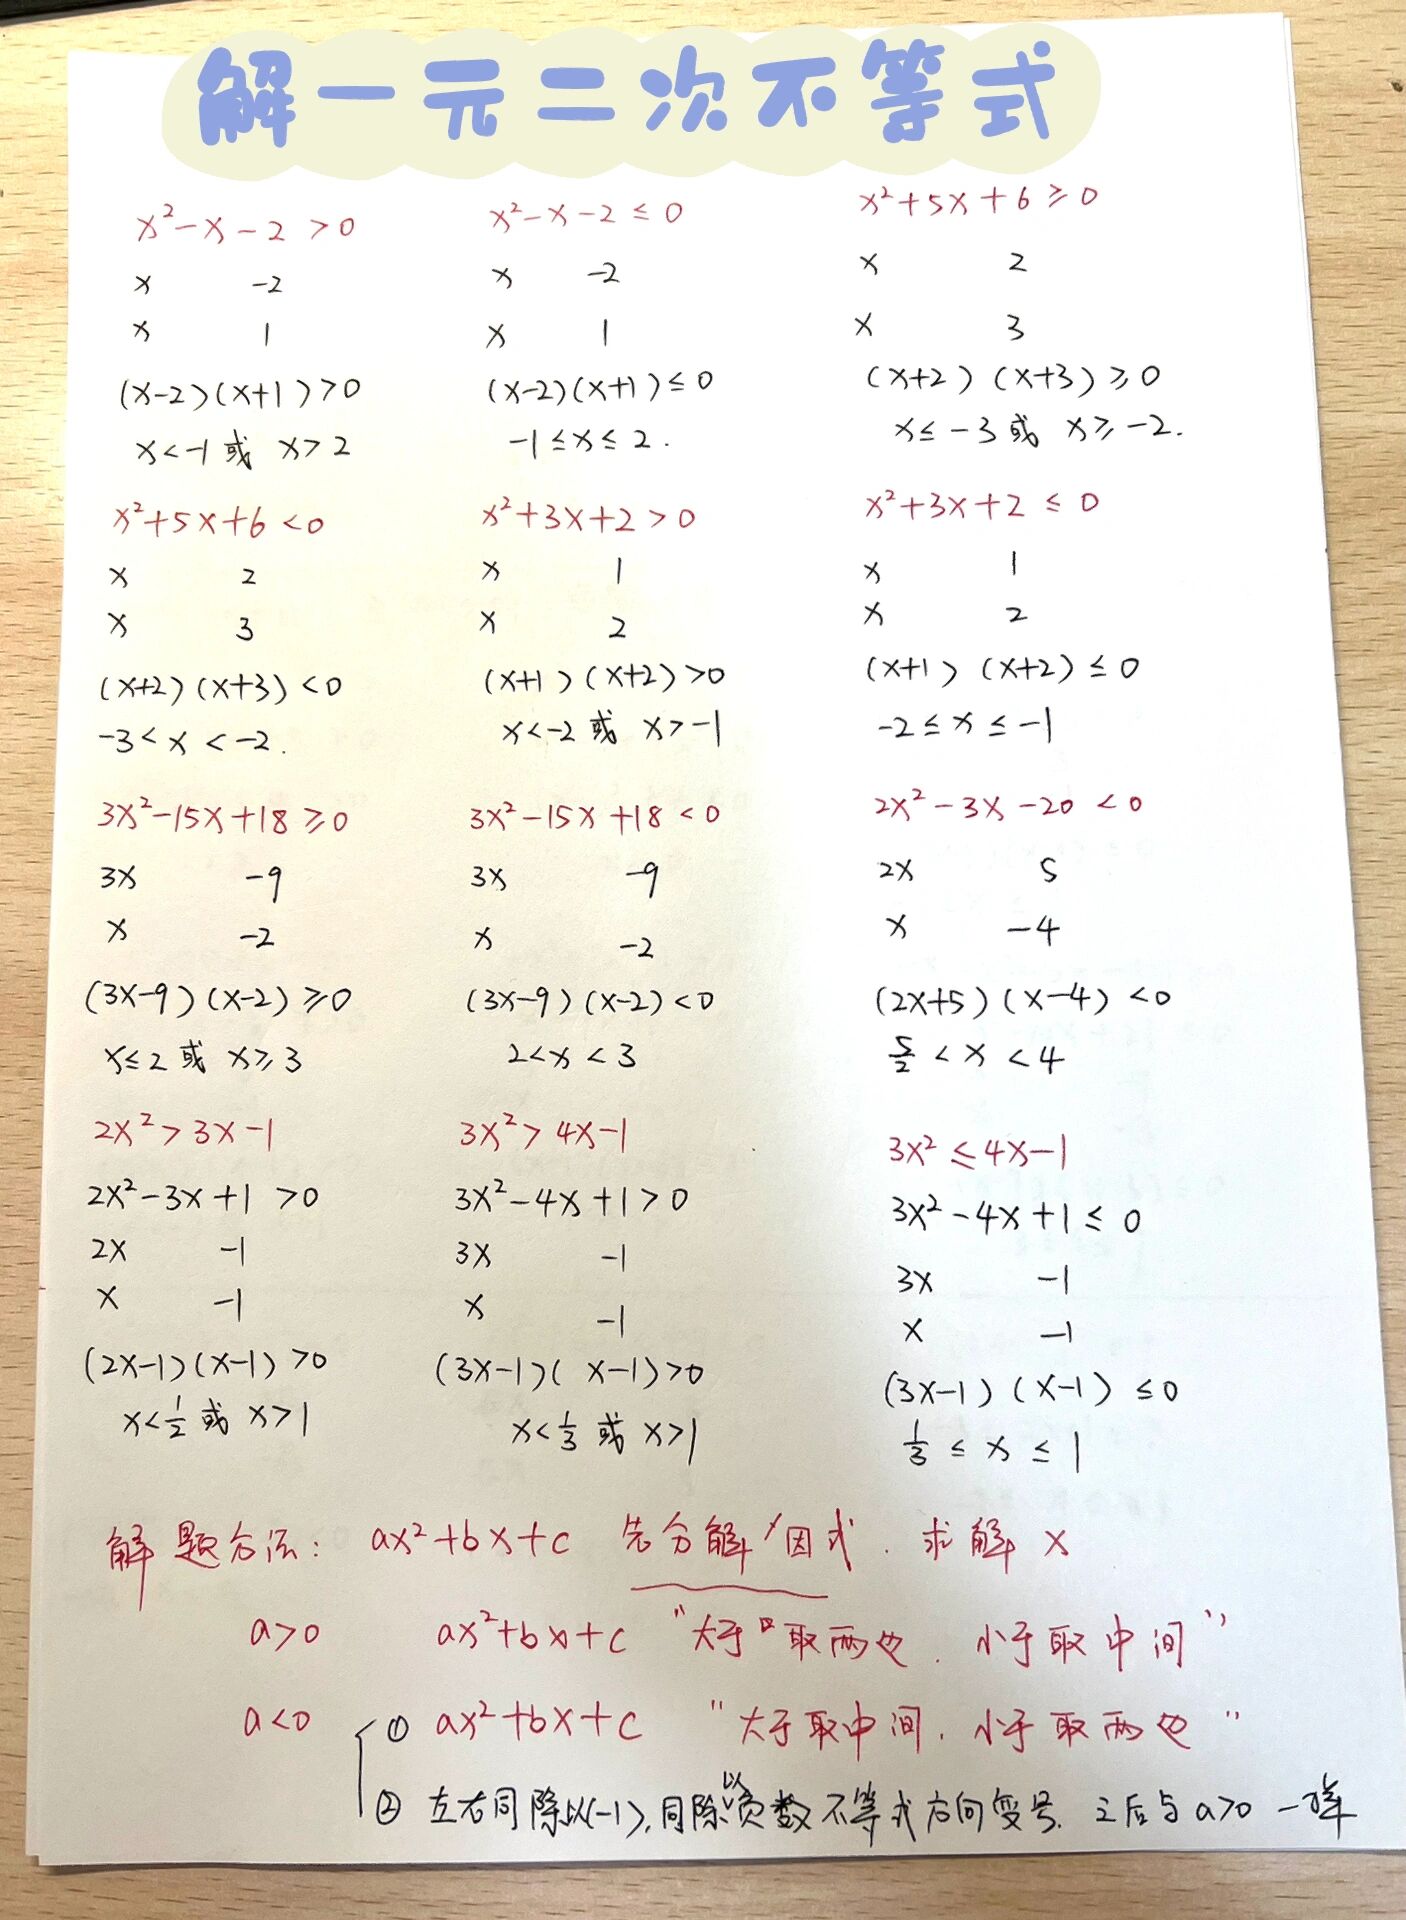 解一元二次不等式
x²-x-2>0
x -2
x 1
(x-2)(x+1)>0
x<-1或 x>2
x²-x-2≤0
x -2
x 1
(x-2)(x+1)≤0
-1≤x≤2.
x²+5x+6≥0
x 2
x 3
(x+2)(x+3)≥0
x≤-3或 x≥-2.
x²+5x+6<0
x 2
x 3
(x+2)(x+3)<0
-3<x<-2.
x²+3x+2>0
x 1
x 2
(x+1)(x+2)>0
x<-2或 x>-1
x²+3x+2≤0
x 1
x 2
(x+1)(x+2)≤0
-2≤x≤-1
3x²-15x+18≥0
3x -9
x -2
(3x-9)(x-2)≥0
x≤2或 x≥3
3x²-15x+18<0
3x -9
x -2
(3x-9)(x-2)<0
2<x<3
2x²-3x-20<0
2x 5
x -4
(2x+5)(x-4)<0
5/2<x<4
2x²>3x-1
2x²-3x+1>0
2x -1
x -1
(2x-1)(x-1)>0
x<1/2或 x>1
3x²>4x-1
3x²-4x+1>0
3x -1
x -1
(3x-1)(x-1)>0
x<1/3或 x>1
3x²≤4x-1
3x²-4x+1≤0
3x -1
x -1
(3x-1)(x-1)≤0
1/3≤x≤1
解题方法: ax²+bx+c 先分解因式.求解 x
a>0 ax²+bx+c "大于取两边.小于取中间"
a<0 ① ax²+bx+c "大于取中间.小于取两边"
② 左右同除以(-1),同除以负数不等式方向变号.之后与a>0一样